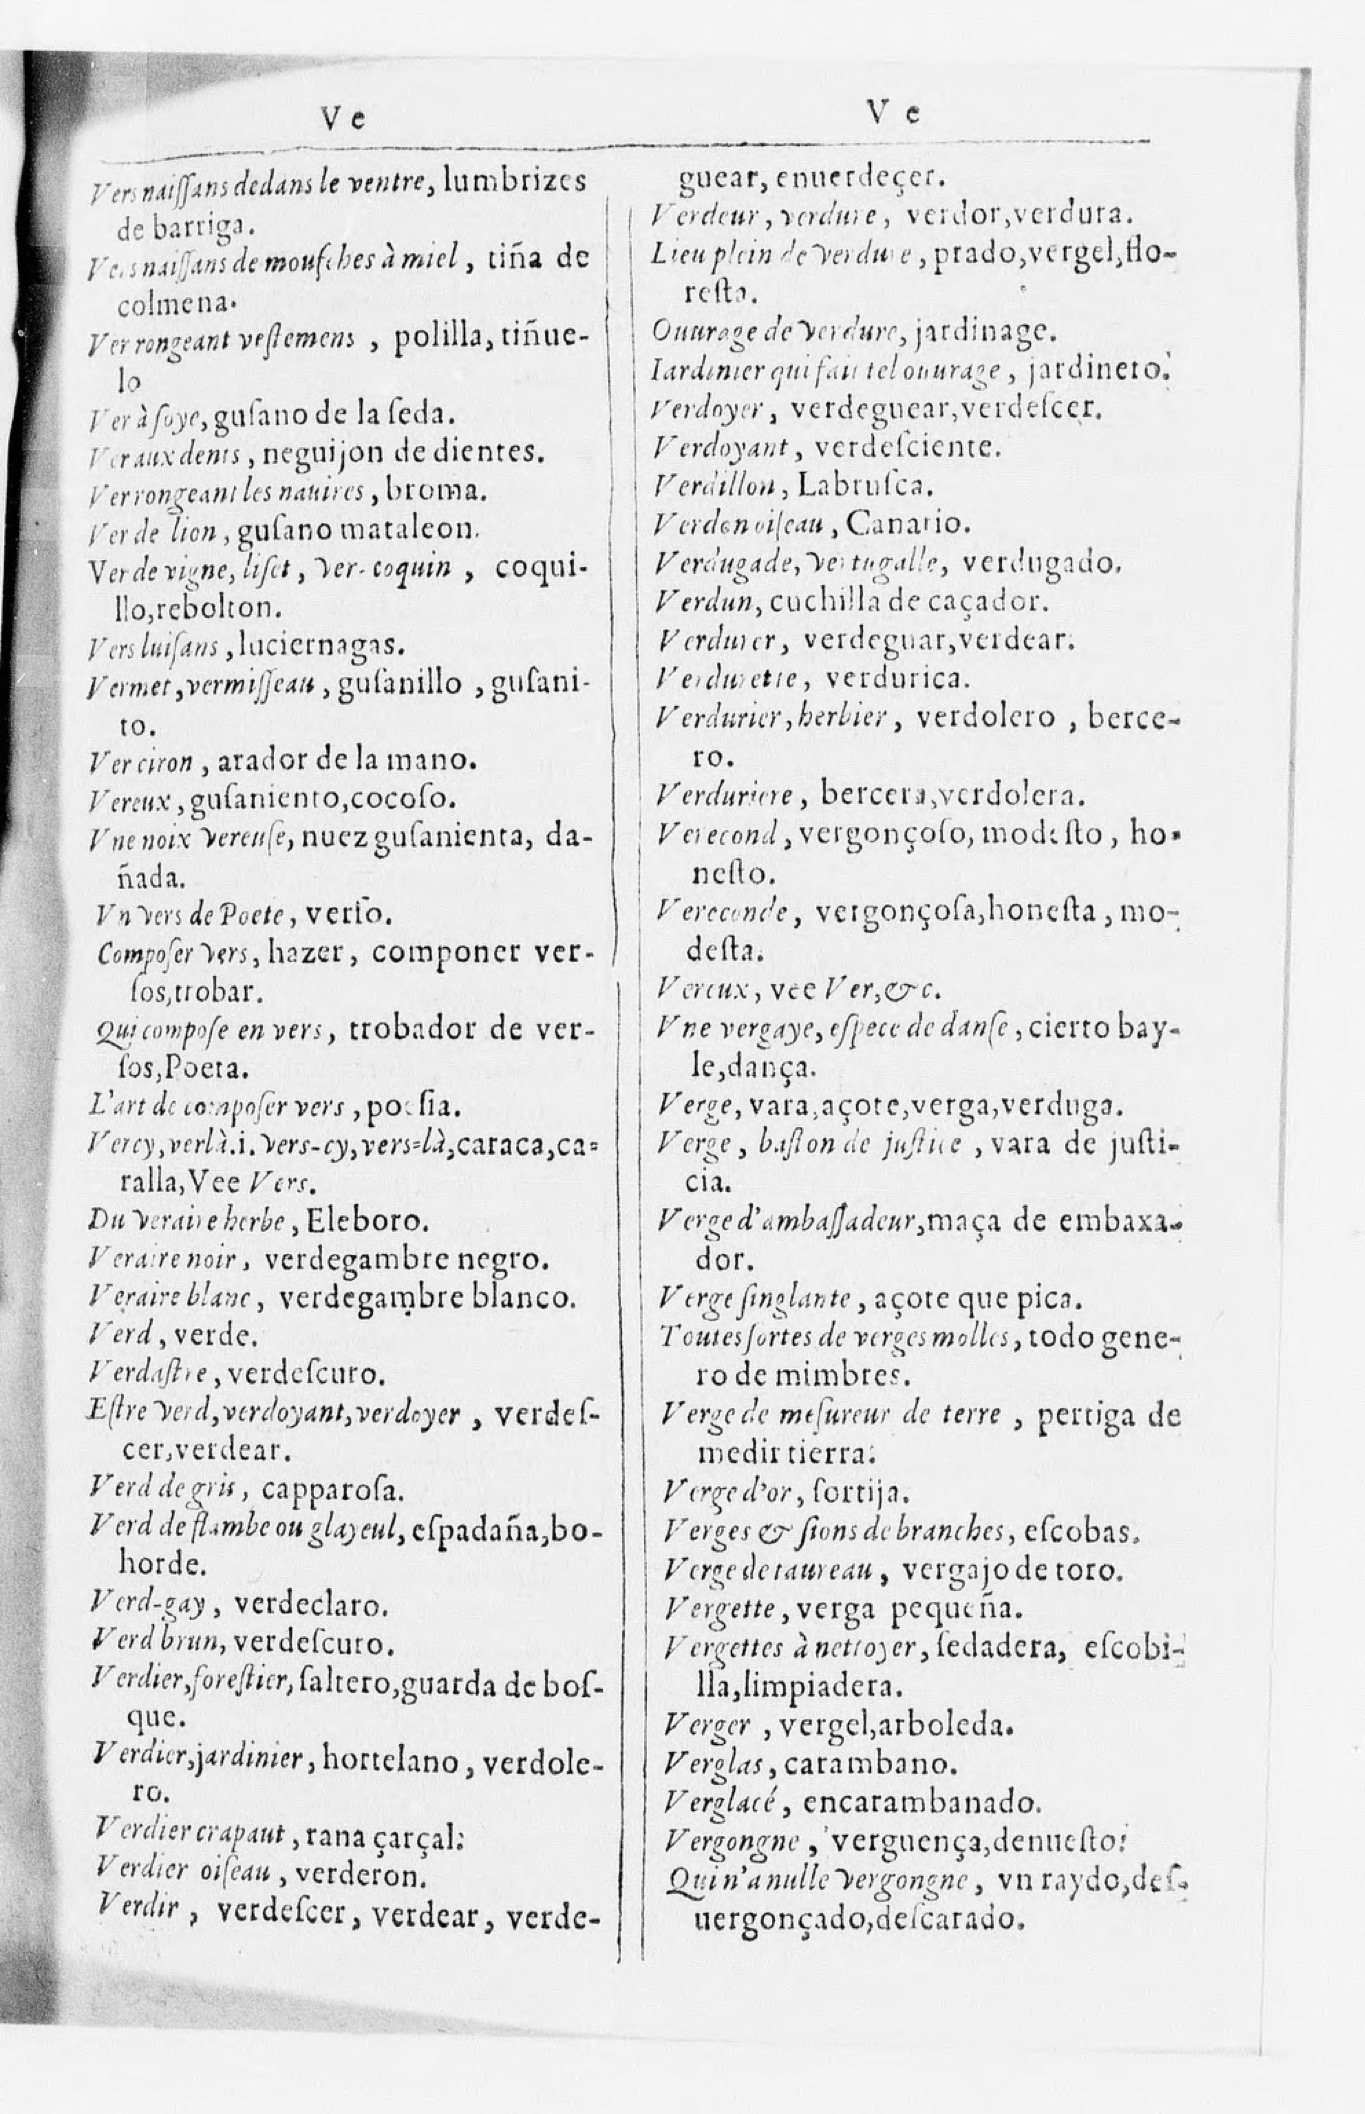 Ve
Vers naiſſans dedans le ventre, lumbrizes
de barriga.
Vers naiſſans de mouſches à miel, tiña de
colmena.
Ver rongeant veſtemens, polilla, tiñue-
lo
Ver à ſoye, guſano de la ſeda.
Ver aux dents, neguijon de dientes.
Ver rongeant les nauires, broma.
Ver de lion, guſano mataleon.
Ver de vigne, liſet, ver-coquin, coqui-
llo, rebolton.
Vers luiſans, luciernagas.
Vermet, vermiſſeau, guſanillo, guſani-
to.
Ver ciron, arador de la mano.
Vereux, guſaniento, cocoſo.
Vne noix vereuſe, nuez guſanienta, da-
ñada.
Vn vers de Poete, verſo.
Compoſer vers, hazer, componer ver-
ſos, trobar.
Qui compoſe en vers, trobador de ver-
ſos, Poeta.
L'art de compoſer vers, poeſia.
Vercy, verlà .i. vers-cy, vers-là, caraca, ca-
ralla, Vee Vers.
Du veraire herbe, Eleboro.
Veraire noir, verdegambre negro.
Veraire blanc, verdegambre blanco.
Verd, verde.
Verdaſtre, verdeſcuro.
Eſtre verd, verdoyant, verdoyer, verdeſ-
cer, verdear.
Verd de gris, capparoſa.
Verd de flambe ou glayeul, eſpadaña, bo-
horde.
Verd-gay, verdeclaro.
Verd brun, verdeſcuro.
Verdier, foreſtier, ſaltero, guarda de boſ-
que.
Verdier, jardinier, hortelano, verdole-
ro.
Verdier crapaut, rana çarçal.
Verdier oiſeau, verderon.
Verdir, verdeſcer, verdear, verde-
Ve
guear, enuerdeçer.
Verdeur, verdure, verdor, verdura.
Lieu plein de verdure, prado, vergel, flo-
reſta.
Ouurage de verdure, jardinage.
Iardinier qui fait tel ouurage, jardinero.
Verdoyer, verdeguear, verdeſcer.
Verdoyant, verdeſciente.
Verdillon, Labruſca.
Verdon oiſeau, Canario.
Verdugade, vertugalle, verdugado.
Verdun, cuchilla de caçador.
Verdurer, verdeguar, verdear.
Verdurette, verdurica.
Verdurier, herbier, verdolero, berce-
ro.
Verduriere, bercera, verdolera.
Verecond, vergonçoſo, modeſto, ho-
neſto.
Vereconde, vergonçoſa, honeſta, mo-
deſta.
Vereux, vee Ver, &c.
Vne vergaye, eſpece de danſe, cierto bay-
le, dança.
Verge, vara, açote, verga, verduga.
Verge, baſton de juſtice, vara de juſti-
cia.
Verge d'ambaſſadeur, maça de embaxa-
dor.
Verge ſinglante, açote que pica.
Toutes ſortes de verges molles, todo gene-
ro de mimbres.
Verge de meſureur de terre, pertiga de
medir tierra.
Verge d'or, ſortija.
Verges & ſions de branches, eſcobas.
Verge de taureau, vergajo de toro.
Vergette, verga pequeña.
Vergettes à nettoyer, ſedadera, eſcobi-
lla, limpiadera.
Verger, vergel, arboleda.
Verglas, carambano.
Verglacé, encarambanado.
Vergongne, verguença, denueſto.
Qui n'a nulle vergongne, vn raydo, deſ-
uergonçado, deſcarado.